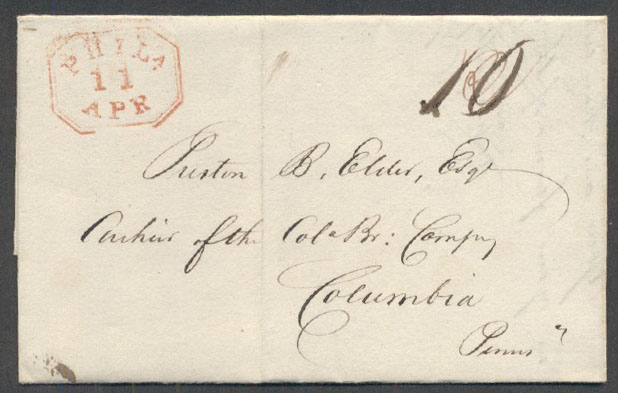 PHILA
11
APR
10
Preston B. Elder, Esqr
Cashier of the Cola Br: Compy
Columbia
Pennsa